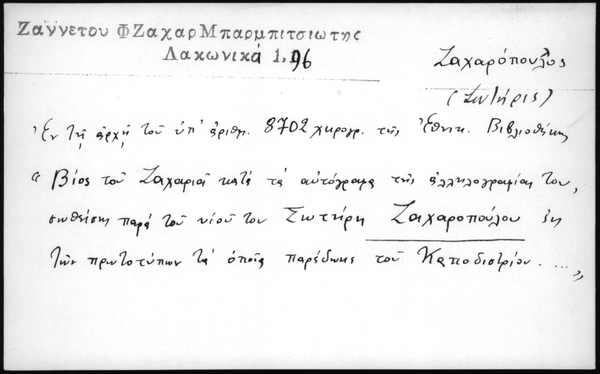 Ζαννέτου Φ Ζαχαρ Μπαρμπιτσιωτης
Λακωνικά 1.96
Ζαχαρόπουλος
(Σωτήρις)
Ἐν τῇ ἀρχῇ τοῦ ὑπ' ἀριθμ. 8702 χειρογρ. τῆς Ἐθνικ. Βιβλιοθήκης
" Βίος τοῦ Ζαχαριᾶ κατὰ τὰ αὐτόγραφα τῆς ἀλληλογραφίας του,
σωθείσης παρὰ τοῦ υἱοῦ του Σωτήρη Ζαχαροπούλου ἐκ
τῶν πρωτοτύπων τὰ ὁποῖα παρέδωκε τοῦ Καποδιστρίου. ... "